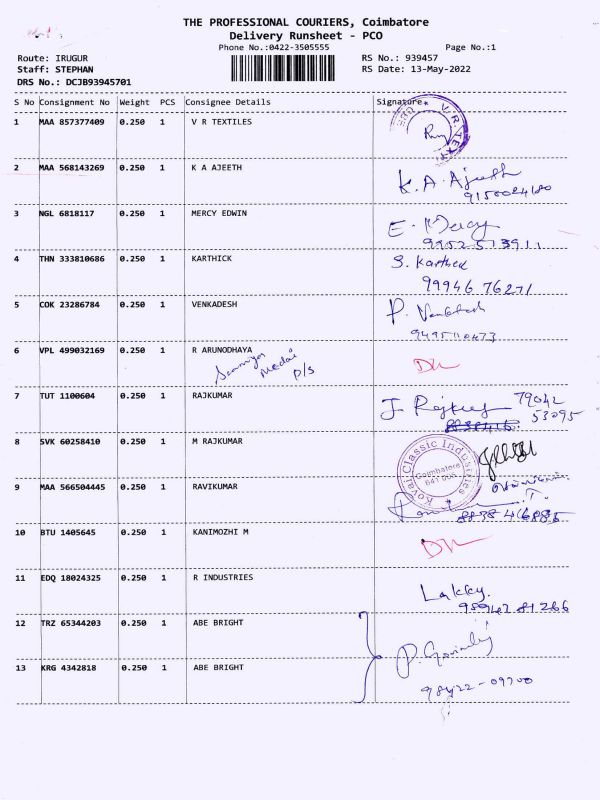 THE PROFESSIONAL COURIERS, Coimbatore
Delivery Runsheet - PCO
Phone No.:0422-3505555
Page No.:1
Route: IRUGUR
RS No.: 939457
Staff: STEPHAN
RS Date: 13-May-2022
DRS No.: DCJB93945701
S No Consignment No Weight PCS Consignee Details Signature
1 MAA 857377409 0.250 1 V R TEXTILES
V.R. TEXT
2 MAA 568143269 0.250 1 K A AJEETH K.A. Ajeeth
3 NGL 6818117 0.250 1 MERCY EDWIN E. Mercy
9952513911
4 THN 333810686 0.250 1 KARTHICK S. Karthick
99946 76271
5 COK 23286784 0.250 1 VENKADESH P. Venkadesh
6 VPL 499032169 0.250 1 R ARUNODHAYA
P/S
7 TUT 1100604 0.250 1 RAJKUMAR J. Rajkumar 79042
53095
8 SVK 60258410 0.250 1 M RAJKUMAR
Kovai Classic Industries
Coimbatore
641 008
9 MAA 566504445 0.250 1 RAVIKUMAR
10 BTU 1405645 0.250 1 KANIMOZHI M
11 EDQ 18024325 0.250 1 R INDUSTRIES Lakky.
98947 81266
12 TRZ 65344203 0.250 1 ABE BRIGHT
13 KRG 4342818 0.250 1 ABE BRIGHT
98422-09700